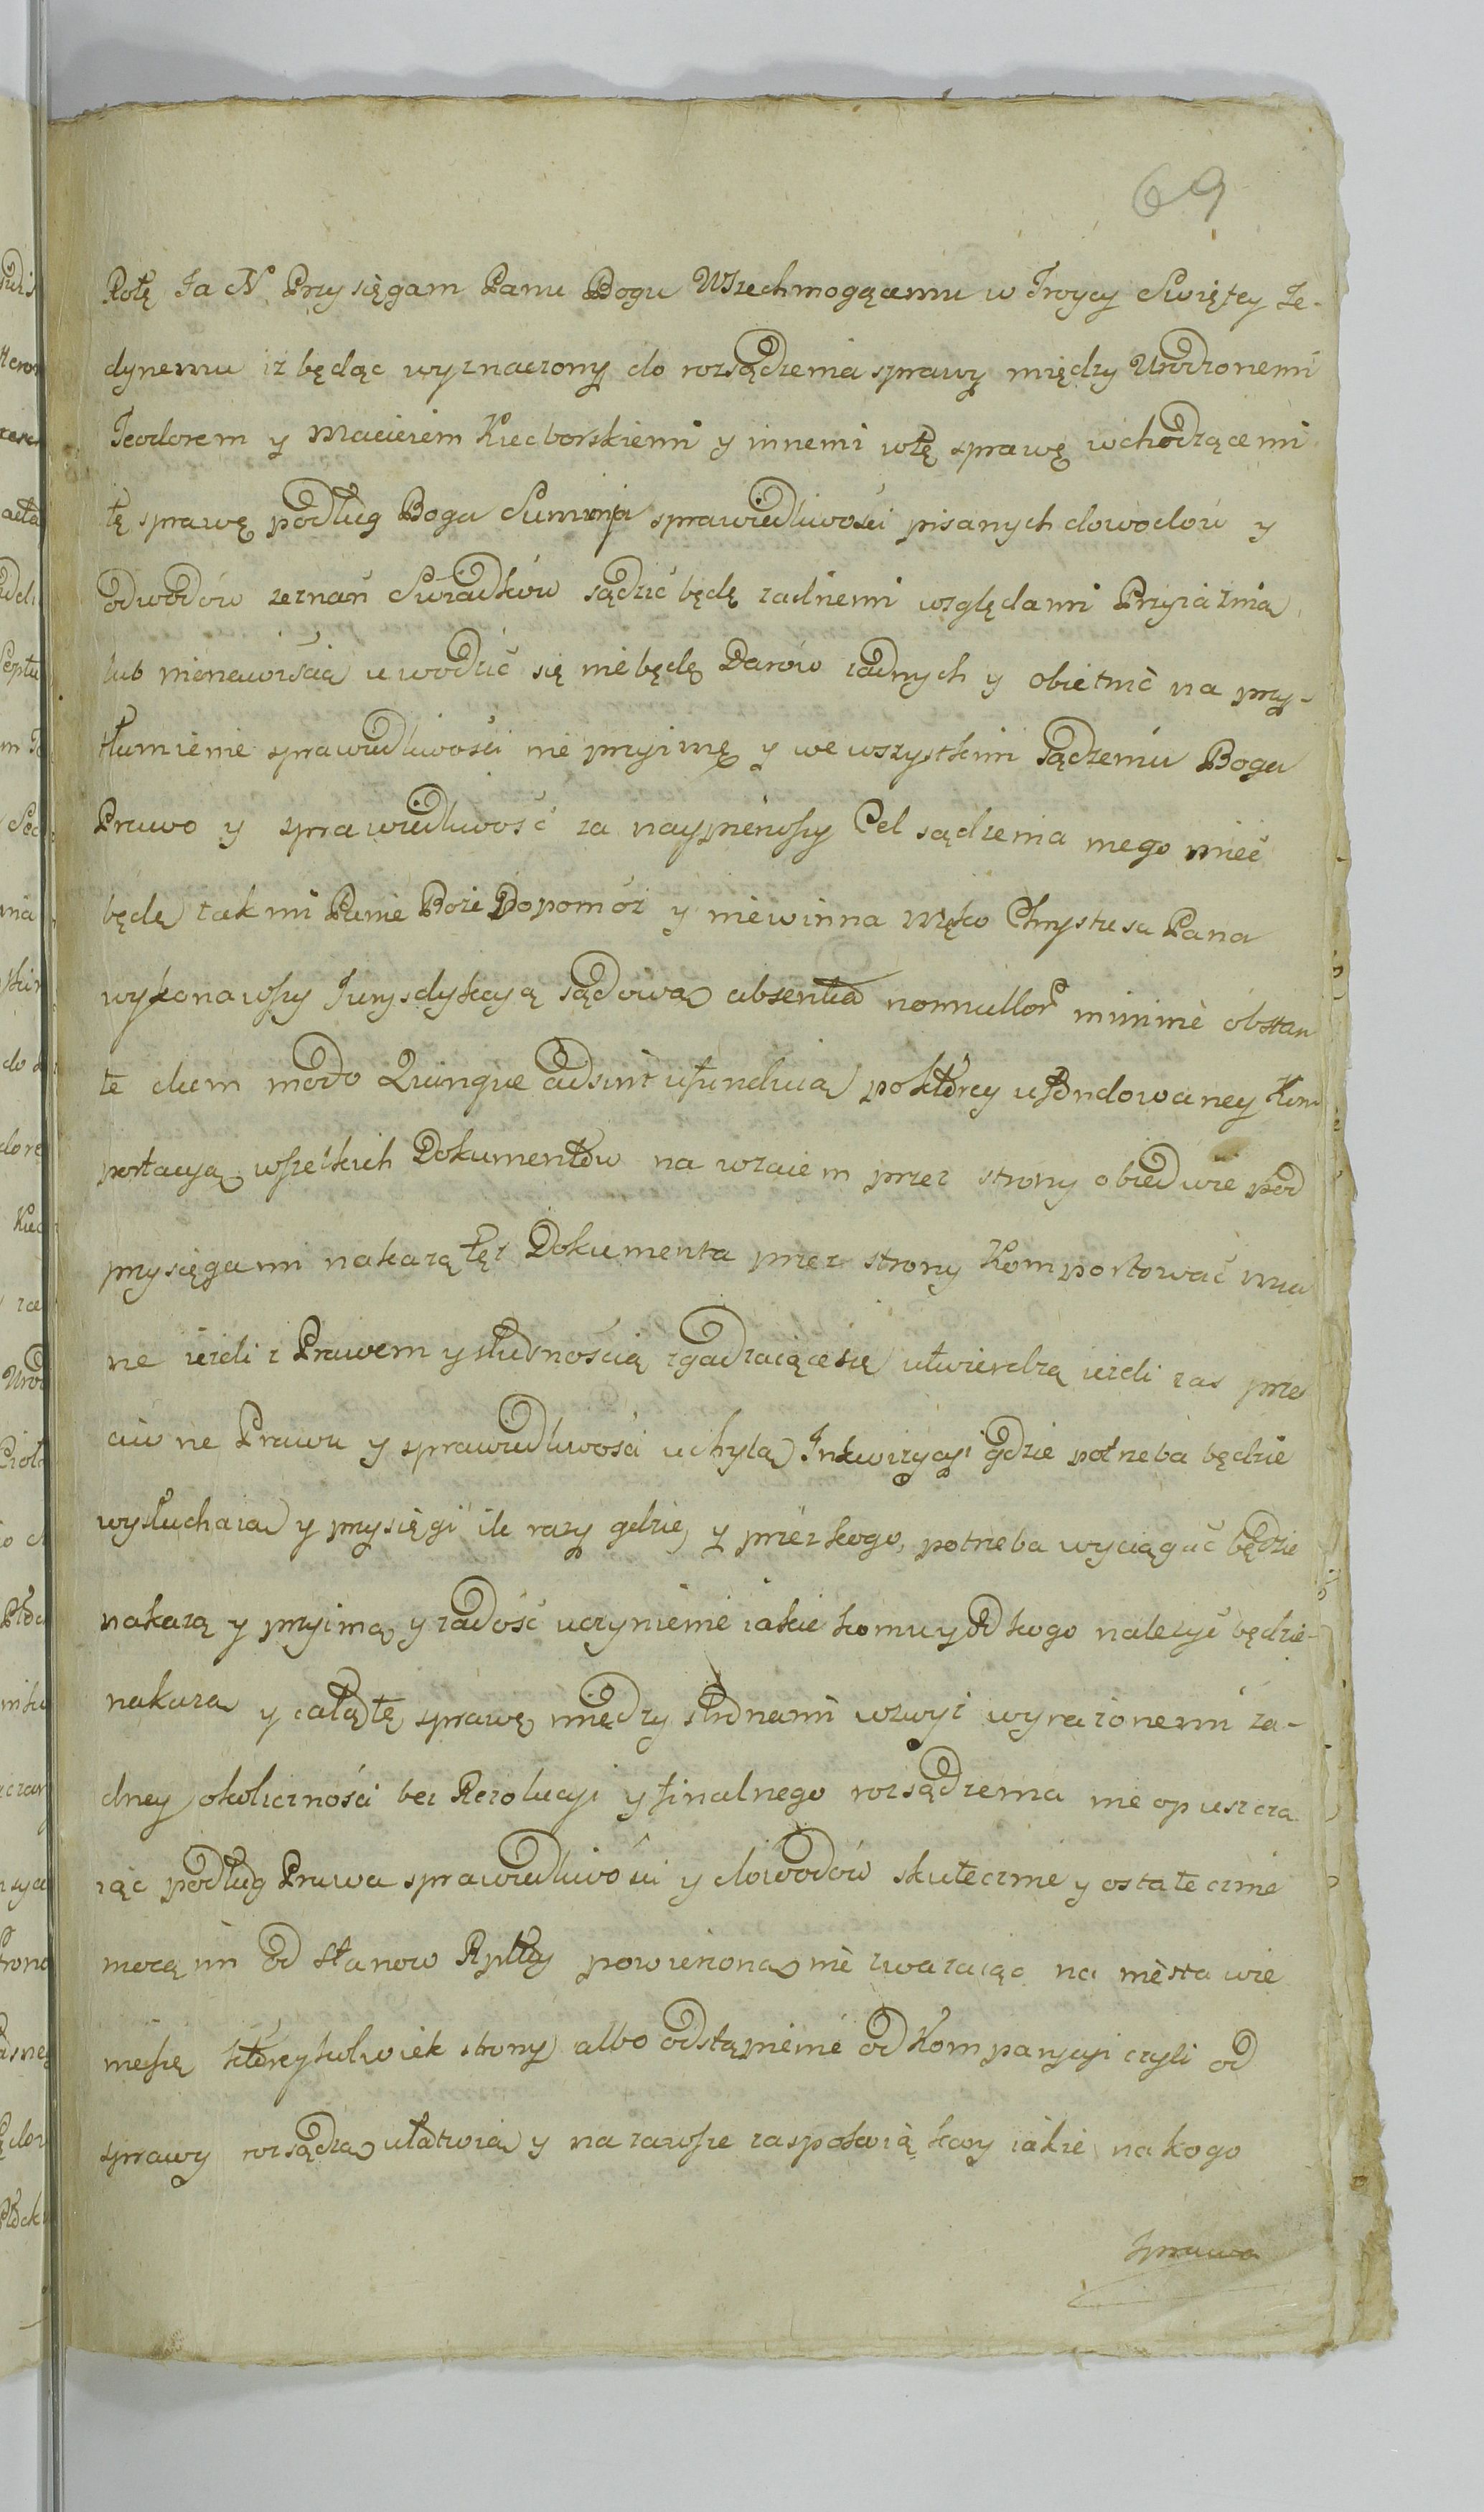 69
Rotę Ja N. Przysięgam Panu Bogu Wszechmogącemu w Troycy Swiętey Je-
dynemu iz będąc wyznaczony do rozsądzenia sprawy między Urodzonemi
Teodorem y Macieiem Kiecborskiemi y innemi wtę sprawę wchodzącemi
tę sprawę podług Boga Sumnia sprawiedliwości pisanych dowodow y
odwodów zeznań Swiadków sądzić będę zadnemi względami Przyiaznią
lub nienawiścią uwodzić się niebędę Darów zadnych y obietnic na przy-
tłumienie sprawiedliwości nie przyimę y we wszystkim sądzeniu Boga
Prawo y sprawiedliwość za naypierwszy Cel sądzenia mego mieć
będę tak mi Panie Boze Dopomóz y niewinna Męko Chrystusa Pana
wykonawszy Jurysdykcyą sądową absentia nonnullor minimè obstan
te dum modo Quinque adsint ufunduią poktórey ufundowaney Kom
portacyą wszelkich Dokumentów na wzaiem przez strony obiedwie pod
przysięgami nakazą tęz Dokumenta przez strony Komportować mia
ne iezeli z Prawem y słusnością zgadzaiące się utwierdzą iezeli zas prze
ciwne Prawu y sprawiedliwości uchylą Inkwizycyi gdzie potrzeba będzie
wysłuchaią y przysięgi ile razy gdzie y przez kogo, potrzeba wyciągać będzie
nakazą y przyimą y zadość uczynienie iakie komu y od kogo nalezyć będzie
nakaza y całą tę sprawę między stronami wzwyż wyrazonemi za-
dney okoliczności bez Rezolucyi y finalnego rozsądzenia nie opuszcza
iąc podług Prawa sprawiedliwości y dowodów skutecznie y ostatecznie
mocą im od Stanow Rpltty powierzoną nie zwazaiąc na niestawie
nieszię któreykolwiek strony albo odstąpienie od Kompanycyi czyli od
sprawy rozsądzą ułatwią y na zawsze zaspokoią kary iakie na kogo
Sprawa